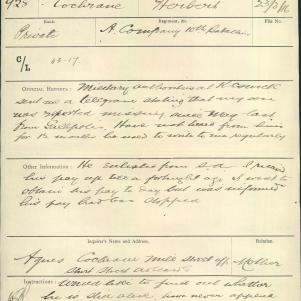 928 Cochrane Herbert 23/3/16
Rank Regiment, &c. File No.
Private A. Company 10th Battn
C/L 23-17.
OFFICIAL REPORTS: Military authorities at
sent me a telegram stating that my son
was reported missing since May last
from Gallipoli. Have not heard from him
for 12 months he used to write to me regularly
OTHER INFORMATION: He enlisted from S.A. I
his pay up till a fortnight ago I went to
obtain his pay to day but was informed
his pay had been stopped
Inquirer's Name and Address. Relation.
Agnes Cochrane Mill Street off Mother
Instructions: Would like to find out whether
he is alive have never